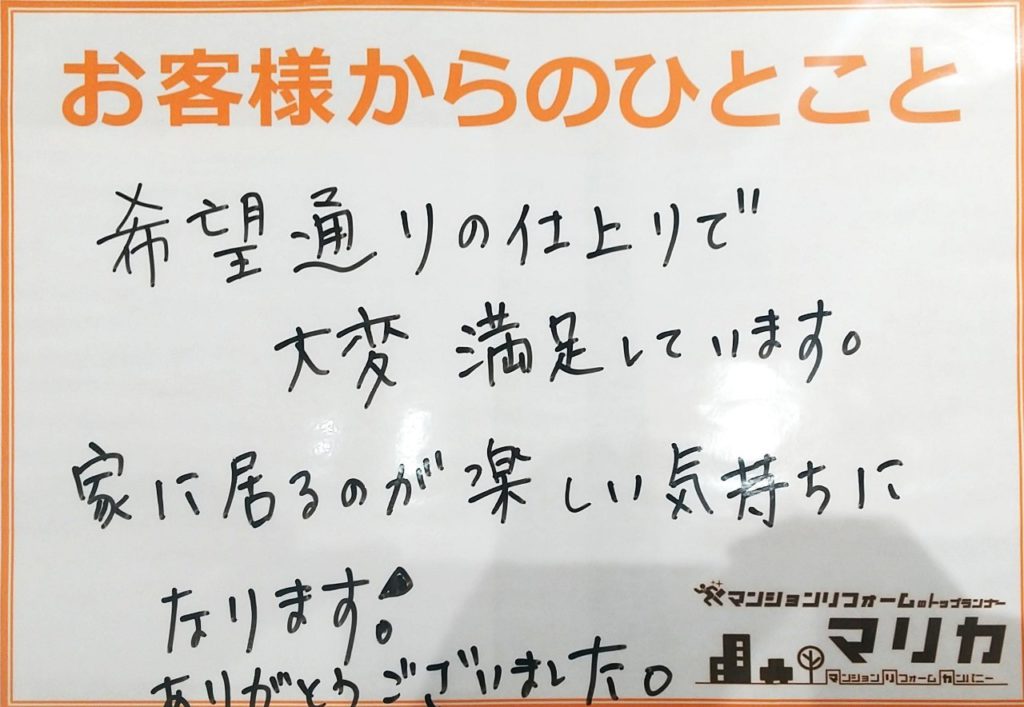 お客様からのひとこと
希望通りの仕上りで
大変 満足しています。
家に居るのが楽しい気持ちに
なります。
ありがとうございました。
マンションリフォームのトップランナー
マリカ
マンションリフォームカンパニー